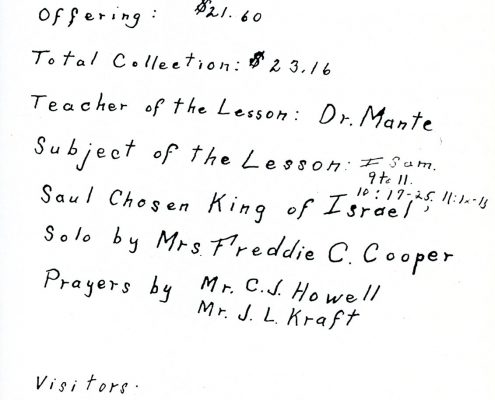 Offering: $21.60
Total Collection: $23.16
Teacher of the Lesson: Dr. Mante
Subject of the Lesson: I Sam.
9 to 11.
10:17-25, 11:12-15
Saul Chosen King of Israel,
Solo by Mrs. Freddie C. Cooper
Prayers by Mr. C.J. Howell
Mr. J. L. Kraft
Visitors.